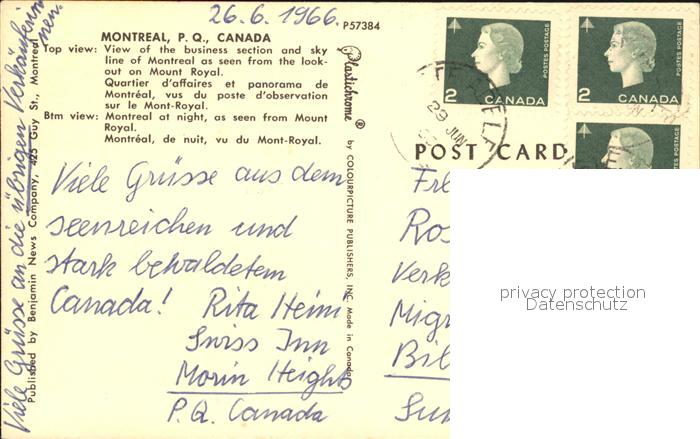 26.6.1966.
P57384
MONTREAL, P. Q., CANADA
Top view: View of the business section and sky
line of Montreal as seen from the look-
out on Mount Royal.
Quartier d'affaires et panorama de
Montréal, vus du poste d'observation
sur le Mont-Royal.
Btm view: Montreal at night, as seen from Mount
Royal.
Montréal, de nuit, vu du Mont-Royal.
Viele Grüsse aus dem
seenreichen und
stark bewaldetem
Canada! Rita Heim
Swiss Inn
Morin Heights
P.Q. Canada
Viele Grüsse an die übrigen Verkäuferin
nen.
Published by Benjamin News Company, 425 Guy St., Montreal
Plastichrome ®
by COLOURPICTURE PUBLISHERS, INC. Made in Canada
2 CANADA
POSTES POSTAGE
2 CANADA
POSTES POSTAGE
POSTES POSTAGE
29 JUN
POST CARD
Frl
Ros
Verk
Migr
Bil
privacy protection
Datenschutz